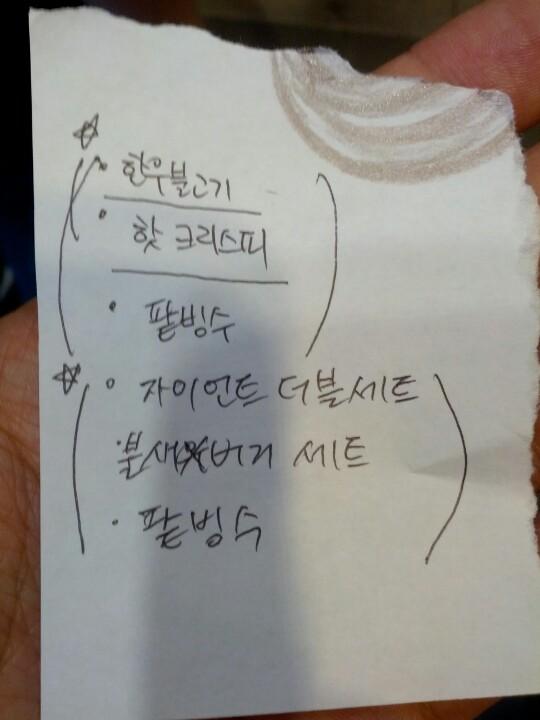 한우불고기
핫 크리스피
팥빙수
자이언트 더블세트
불새버거 세트
팥빙수